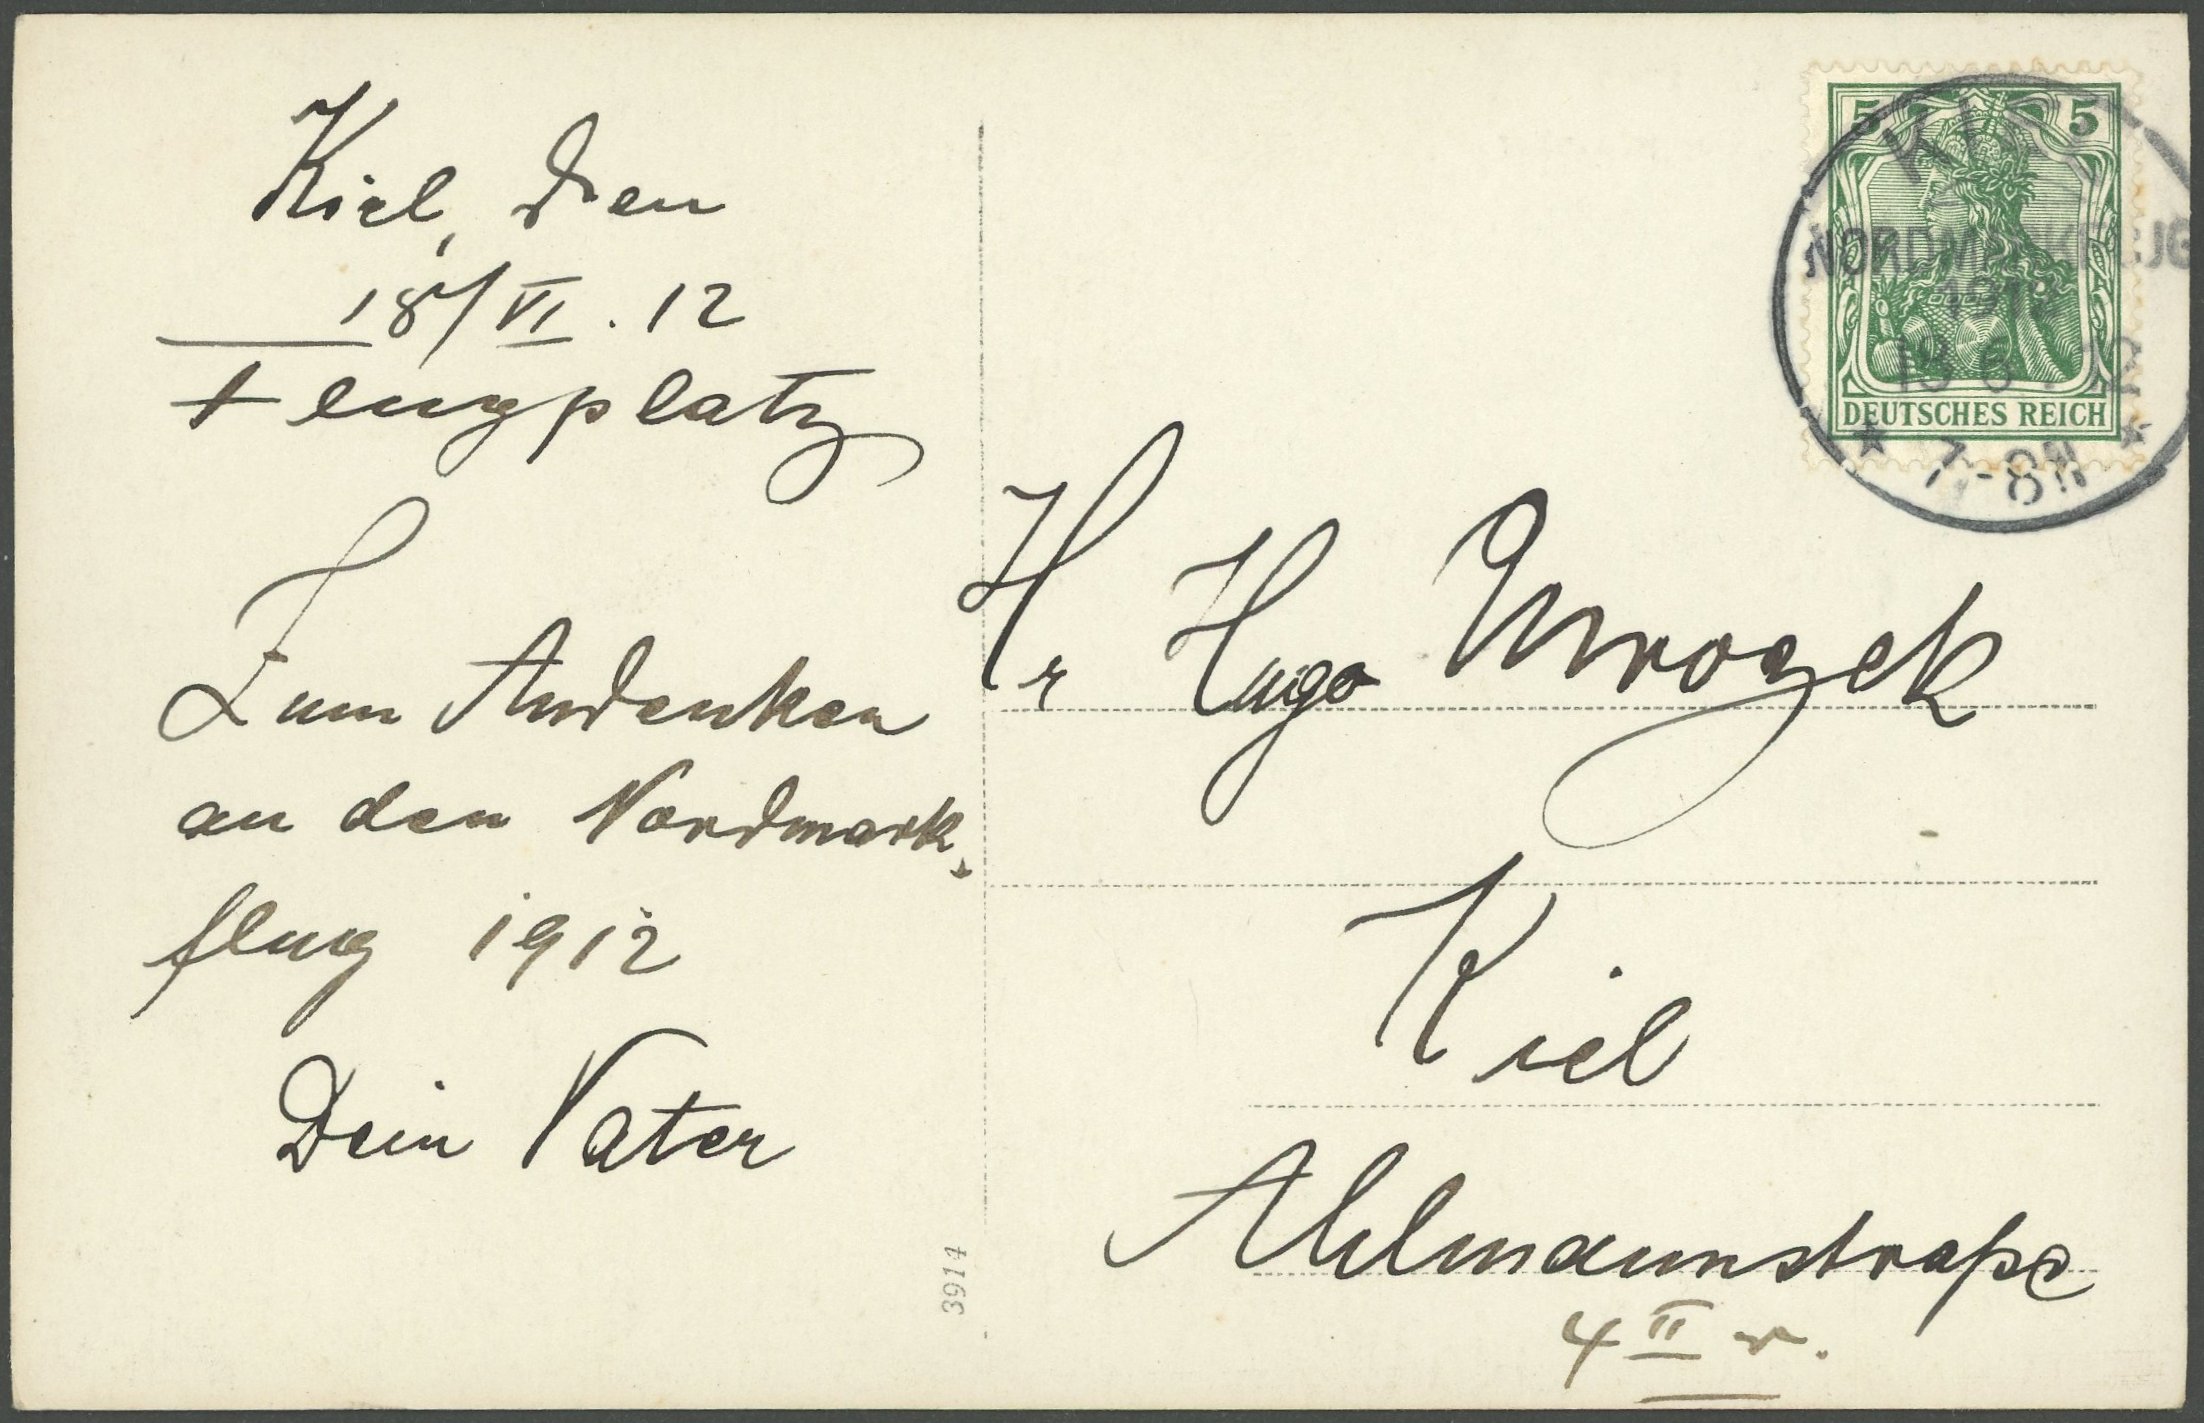 Kiel, den
18/VI. 12
Flugplatz
Zum Andenken
an den Nordmark-
flug 1912
Dein Vater
3914
5 5
DEUTSCHES REICH
KIEL
NORDMARKFLUG
1912
7-8N
Hr Hugo Mrozek
Kiel
Ahlmannstraße
4 II r.